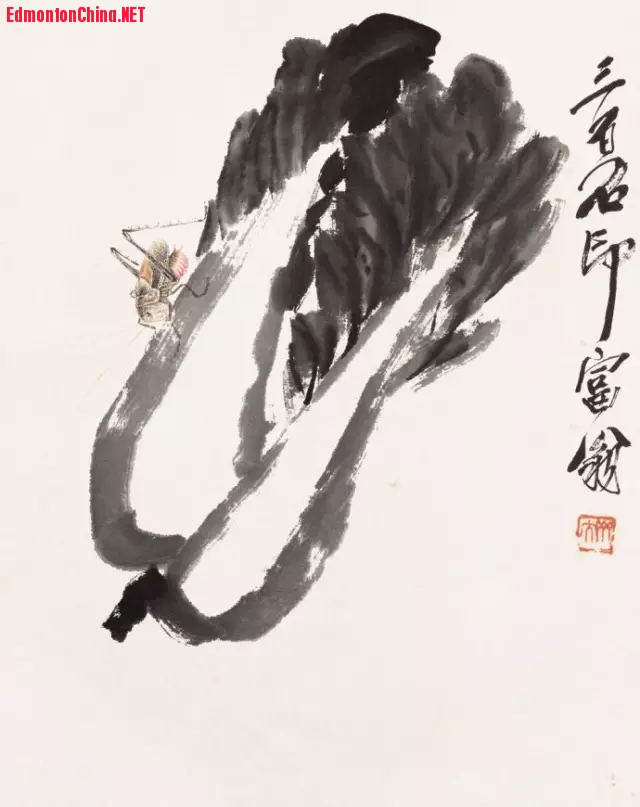 EdmontonChina.NET
三百石印富翁